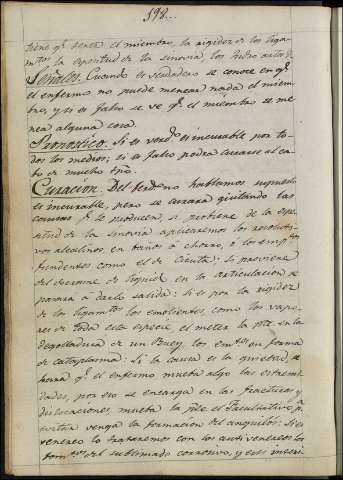 198..
tiene qe. tener el miembro, la rigidez de los liga-
mtos. la espesitud de la sinovia, los
Señales. Cuando es verdadero se conoce en qe.
el enfermo no puede menear nada el miem-
bro, y si es falso se ve qe. el miembro se me-
nea alguna cosa.
Pronostico. Si es verdo. es incurable por to-
dos los medios; si es falso podra curarse al ca-
bo de mucho tpo.
Curacion. Del verdro. no hablamos supuesto
es incurable, pero se curara quitando las
causas qe. lo producen, si proviene de la espe-
situd de la sinovia aplicaremos los resoluti-
vos alcalinos, en baños ó chorro, ó los empos.
fundentes como el de Cicuta: Si proviene
del derrame de liquid en la articulacion se
pasará á darle salida: Si es por la rigidez
de los ligamtos. los emolientes, como los vapo-
res de toda esta especie, el meter la pte. en la
degolladura de un Buey, los en forma
de cataplasma: Si la causa es la quietud, se
hara qe. el enfermo mueva algo las estremi-
dades, por eso se encarga en las fracturas y
dislocaciones, mueva la pte. el Facultativo, pa.
evitar venga la formacion del anquilos: Si es
venereo lo trataremos con los antivenereos los
del sublimado corrosivo, y este interi-